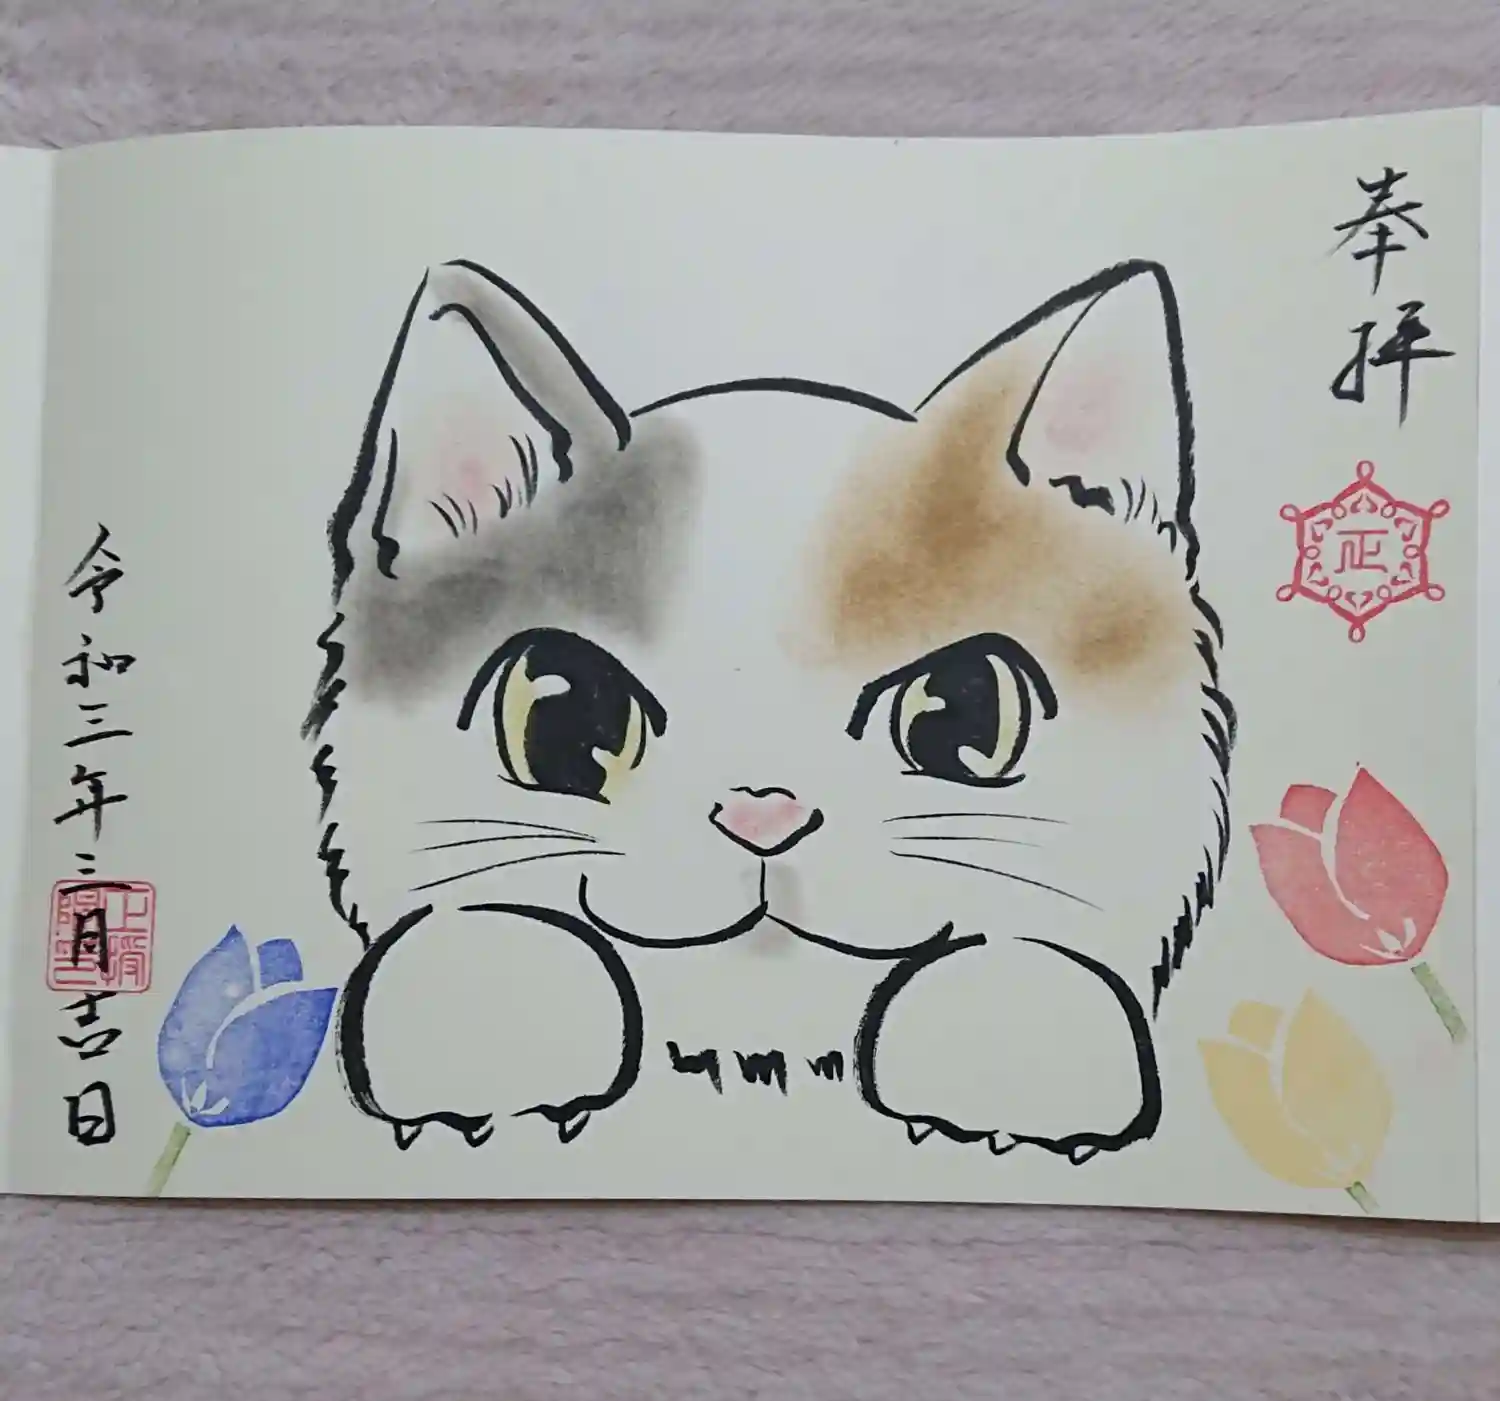 奉拝
正
令和三年三月吉日